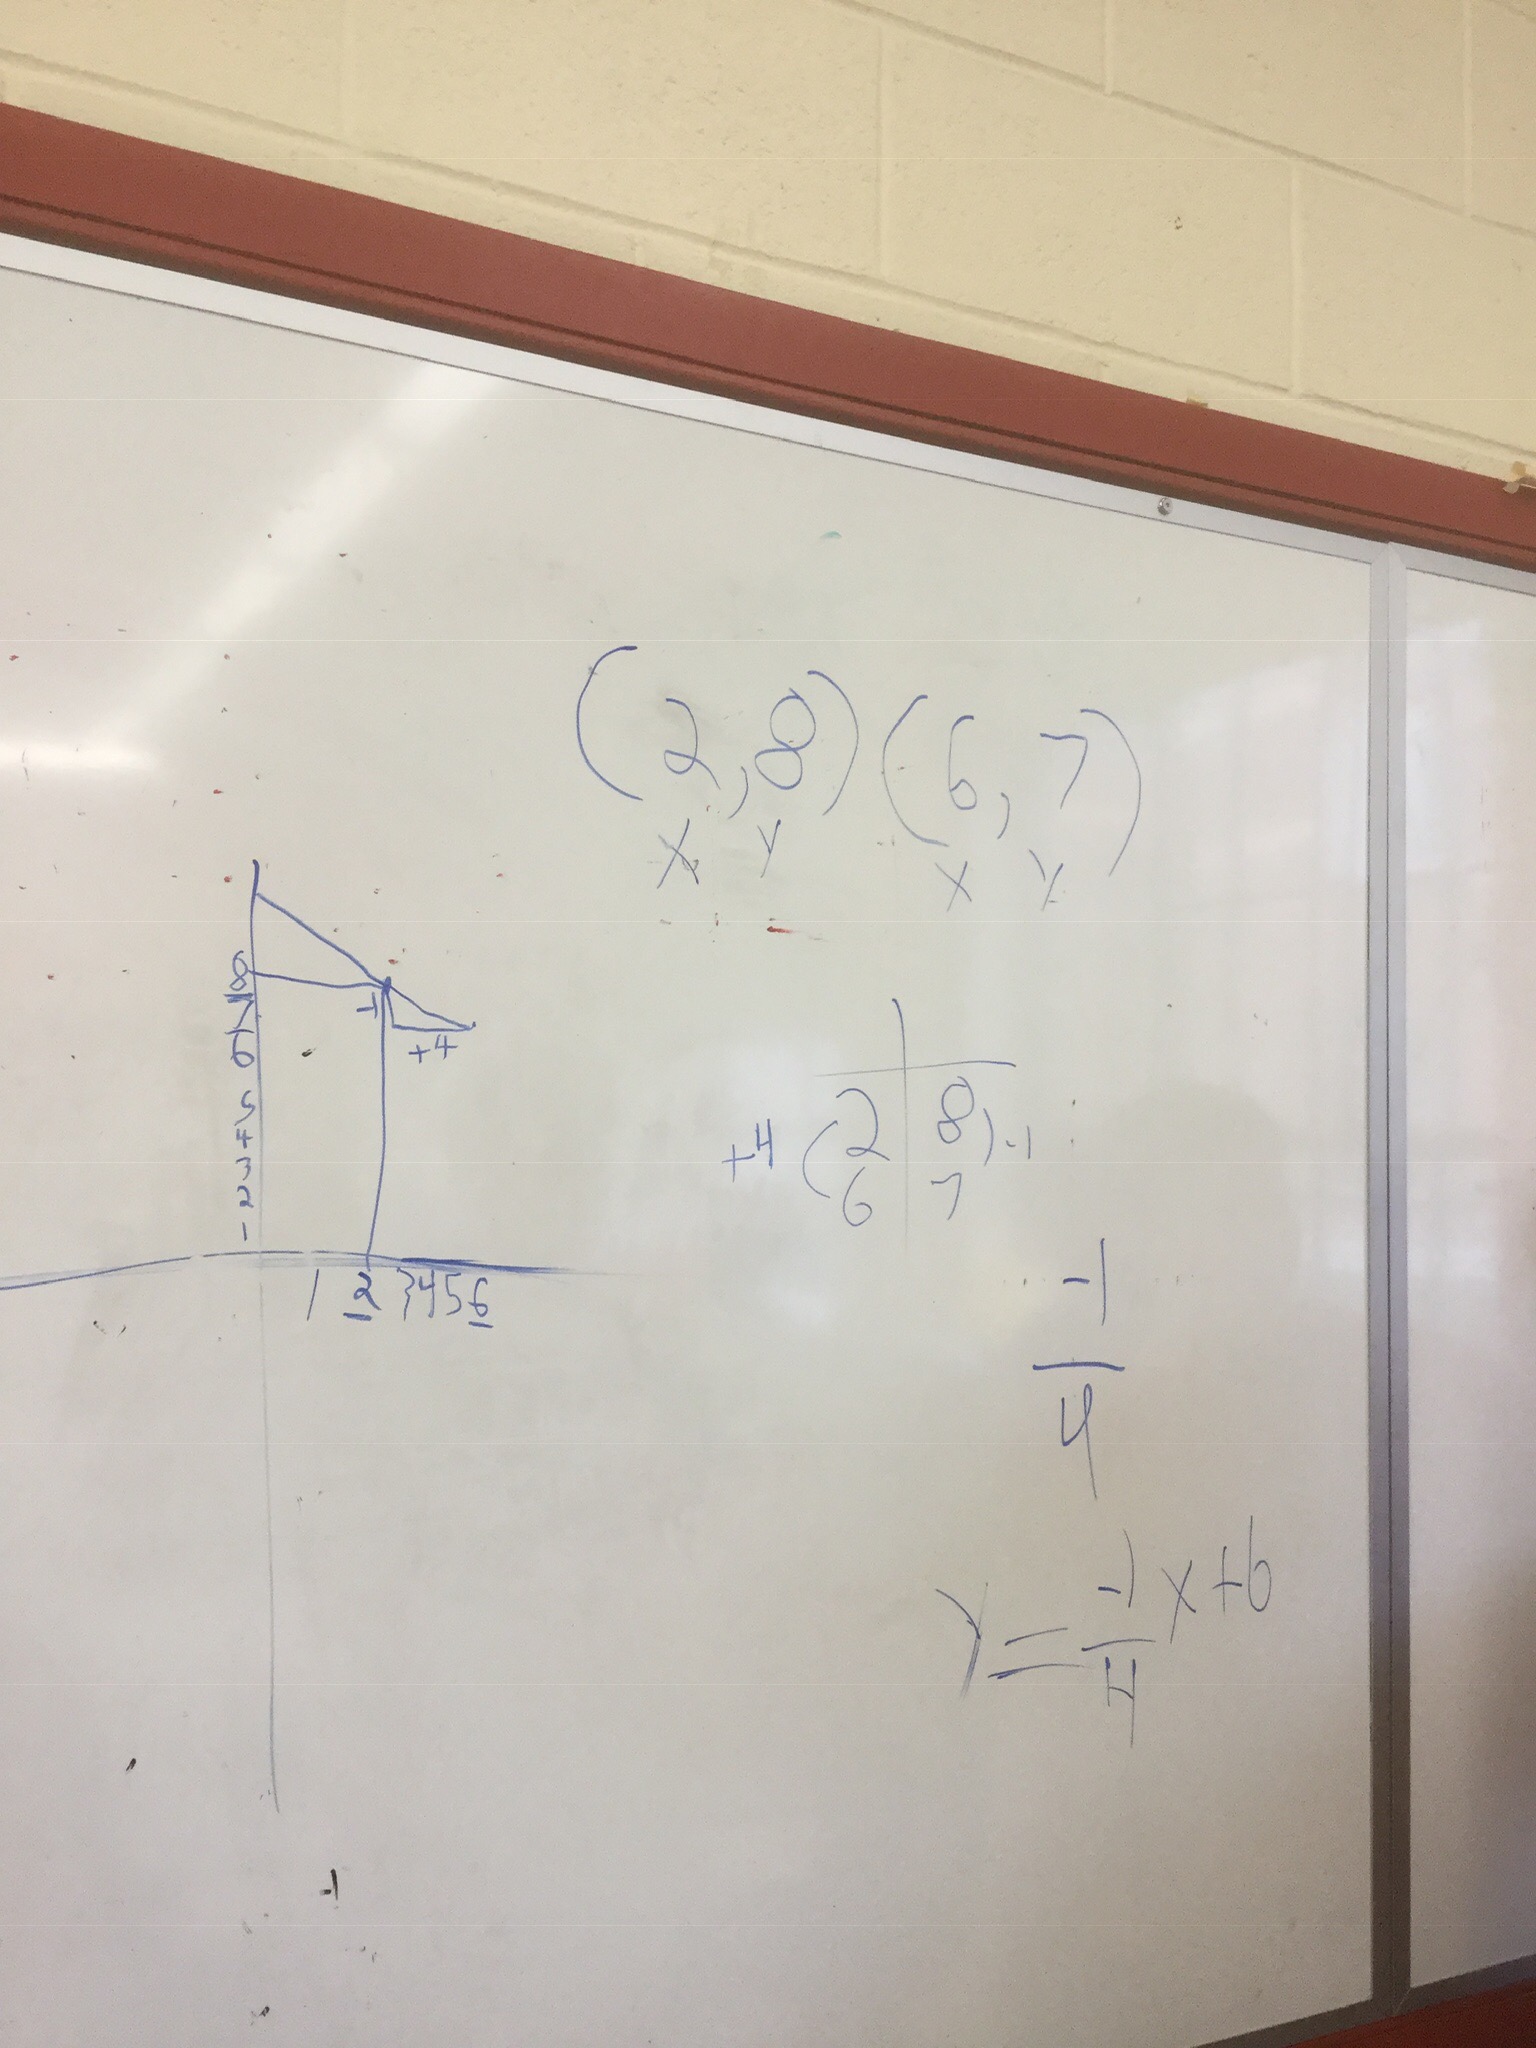 (2,8)(6,7)
X Y X Y
8
7
6
5
4
3
2
1
-1
+4
1 2 3 4 5 6
2 8
+4 ( ) -1
6 7
-1
4
Y = -1 x+b
4
-1